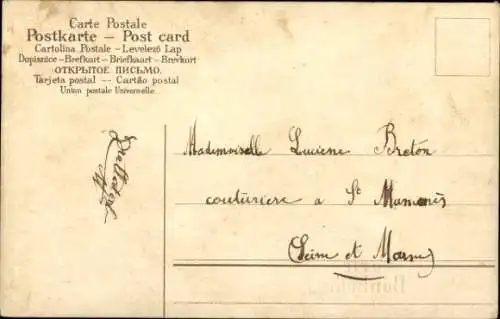 Carte Postale
Postkarte — Post card
Cartolina Postale – Levelező Lap
Dopisnice – Brefkort – Briefkaart – Brevkort
ОТКРЫТОЕ ПИСЬМО.
Tarjeta postal –– Cartão postal
Union postale Universelle.
Mademoiselle Lucienne Breton
couturière a St Mammès
(Seine et Marne)